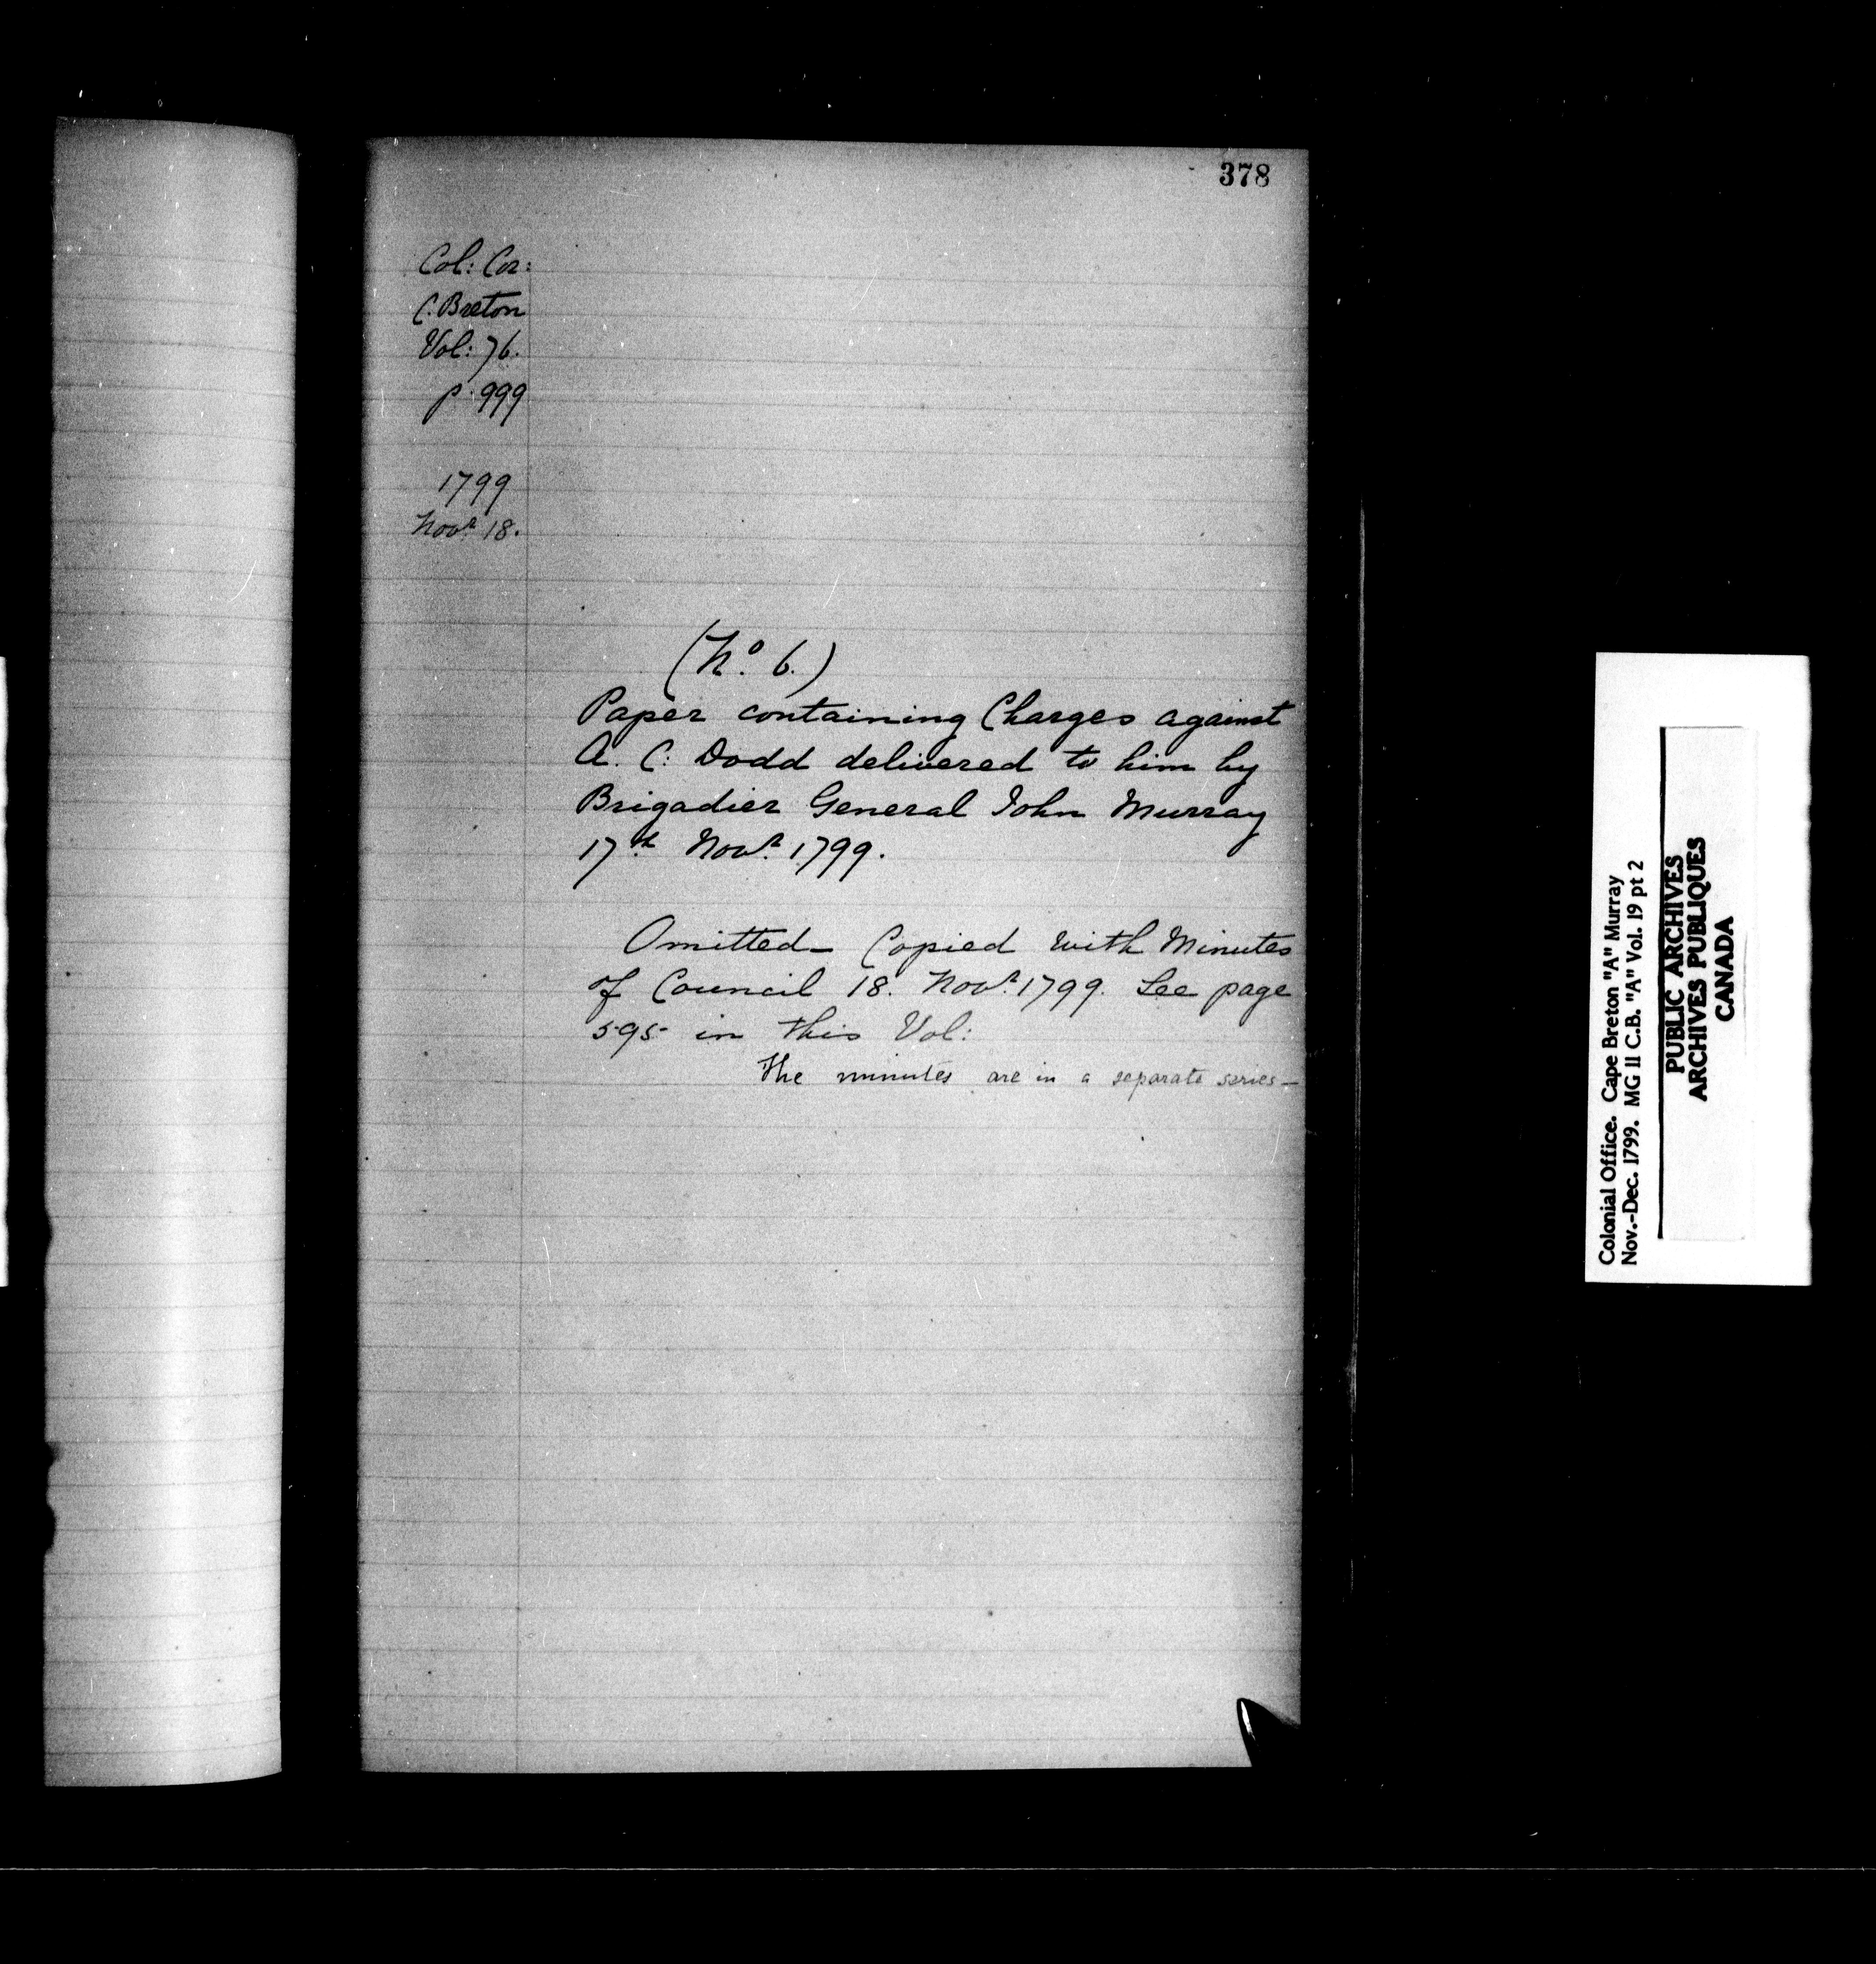 378
Col: Cor:
C. Breton
Vol: 76.
p. 999
1799
Novr. 18.
(No. 6.)
Paper containing Charges against
A. C: Dodd delivered to him by
Brigadier General John Murray
17th Novr. 1799.
Omitted— Copied with Minutes
of Council 18. Novr. 1799. See page
595 in this Vol:
The minutes are in a separate series—
Colonial Office. Cape Breton "A" Murray
Nov.-Dec. 1799. MG 11 C.B. "A" Vol. 19 pt 2
PUBLIC ARCHIVES
ARCHIVES PUBLIQUES
CANADA